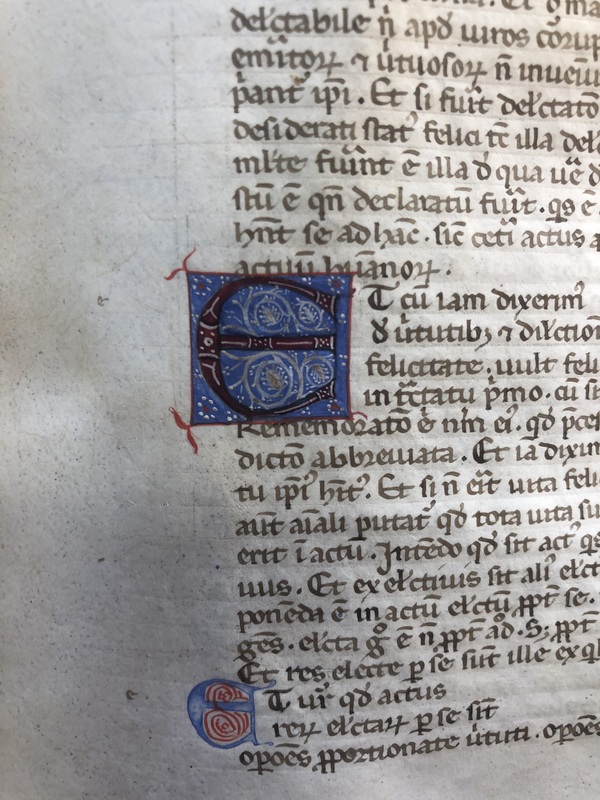 delectabile n̄ apđ uiros corup
emiītoꝝ ⁊ ūtuosoꝝ n̄ inueīu
pant̄ ip̄i. Et si fuīt delc̄tatō
desiderati stat᷒ felicitē illa del
ml̄te fuīnt ē illa đ qua uē
stū ē qn̄ declaratū fuīt. qs ē
hn̄t se ad hāc. sic cet̄i actus
actuū huānoꝝ.
Et cū iam dixerim᷒
đ ūtutib; ⁊ dilc̄tion
felicitate. uult feli
in tc̄tatu p̄mo. cū
Rememoratō ē nīn ei᷒. qđ p̄ce
dictō abbreuiata. Et iā dixim
tu ip̄i hīt᷒. Et si n̄ eīt uita feli
aūt aīali putat᷒ qđ tota uita su
erit ī actū. Intēdo qđ sit act᷒ qs
uus. Et ex elc̄tiuis sit ali᷒ elc̄t
ponēda ē in actū elc̄tū ꝓpt̄ se.
gēs. elc̄ta ḡ ē n̄ ꝓpt̄ ađ. S; ꝓpt̄
Et res electe p se sūt ille ex
Et uīr qđ actus
reꝝ elc̄taꝝ p se sīt
opoēs ꝓportionate ūtuti. opoēs